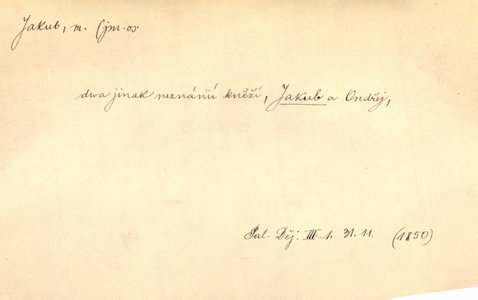 Jakub, m. (jm-os
dva jinak neznámí kněží, Jakub a Ondřej,
Pal. Děj. III-1. 31. 11. (1850)